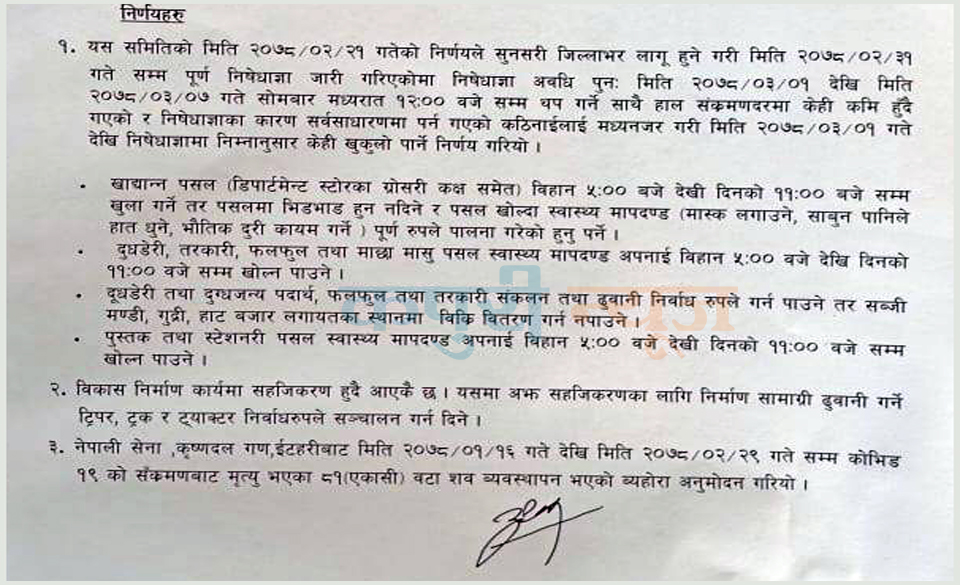 निर्णयहरु
१. यस समितिको मिति २०७८/०२/२१ गतेको निर्णयले सुनसरी जिल्लाभर लागू हुने गरी मिति २०७८/०२/३१
गते सम्म पूर्ण निषेधाज्ञा जारी गरिएकोमा निषेधाज्ञा अवधि पुनः मिति २०७८/०३/०१ देखि मिति
२०७८/०३/०७ गते सोमबार मध्यरात १२:०० बजे सम्म थप गर्ने साथै हाल संक्रमणदरमा केही कमि हुँदै
गएको र निषेधाज्ञाका कारण सर्वसाधारणमा पर्न गएको कठिनाईलाई मध्यनजर गरी मिति २०७८/०३/०१ गते
देखि निषेधाज्ञामा निम्नानुसार केही खुकुलो पार्ने निर्णय गरियो ।
• खाद्यान्न पसल (डिपार्टमेन्ट स्टोरका ग्रोसरी कक्ष समेत) विहान ५:०० बजे देखी दिनको ११:०० बजे सम्म
खुला गर्ने तर पसलमा भिडभाड हुन नदिने र पसल खोल्दा स्वास्थ्य मापदण्ड (मास्क लगाउने, साबुन पानिले
हात धुने, भौतिक दुरी कायम गर्ने ) पूर्ण रुपले पालना गरेको हुनु पर्ने ।
• दुधडेरी, तरकारी, फलफुल तथा माछा मासु पसल स्वास्थ्य मापदण्ड अपनाई विहान ५:०० बजे देखि दिनको
११:०० बजे सम्म खोल्न पाउने ।
• दूधडेरी तथा दुग्धजन्य पदार्थ, फलफुल तथा तरकारी संकलन तथा ढुवानी निर्वाध रुपले गर्न पाउने तर सब्जी
मण्डी, गुद्री, हाट बजार लगायतका स्थानमा विक्रि वितरण गर्न नपाउने ।
• पुस्तक तथा स्टेशनरी पसल स्वास्थ्य मापदण्ड अपनाई विहान ५:०० बजे देखी दिनको ११:०० बजे सम्म
खोल्न पाउने ।
२. विकास निर्माण कार्यमा सहजिकरण हुदै आएकै छ । यसमा अझ सहजिकरणका लागि निर्माण सामाग्री ढुवानी गर्ने
ट्रिपर, ट्रक र ट्याक्टर निर्वाधरुपले सञ्चालन गर्न दिने ।
३. नेपाली सेना ,कृष्णदल गण,ईटहरीबाट मिति २०७८/०१/१६ गते देखि मिति २०७८/०२/२९ गते सम्म कोभिड
१९ को सँक्रमणबाट मृत्यु भएका ८१(एकासी) वटा शव ब्यवस्थापन भएको ब्यहोरा अनुमोदन गरियो ।